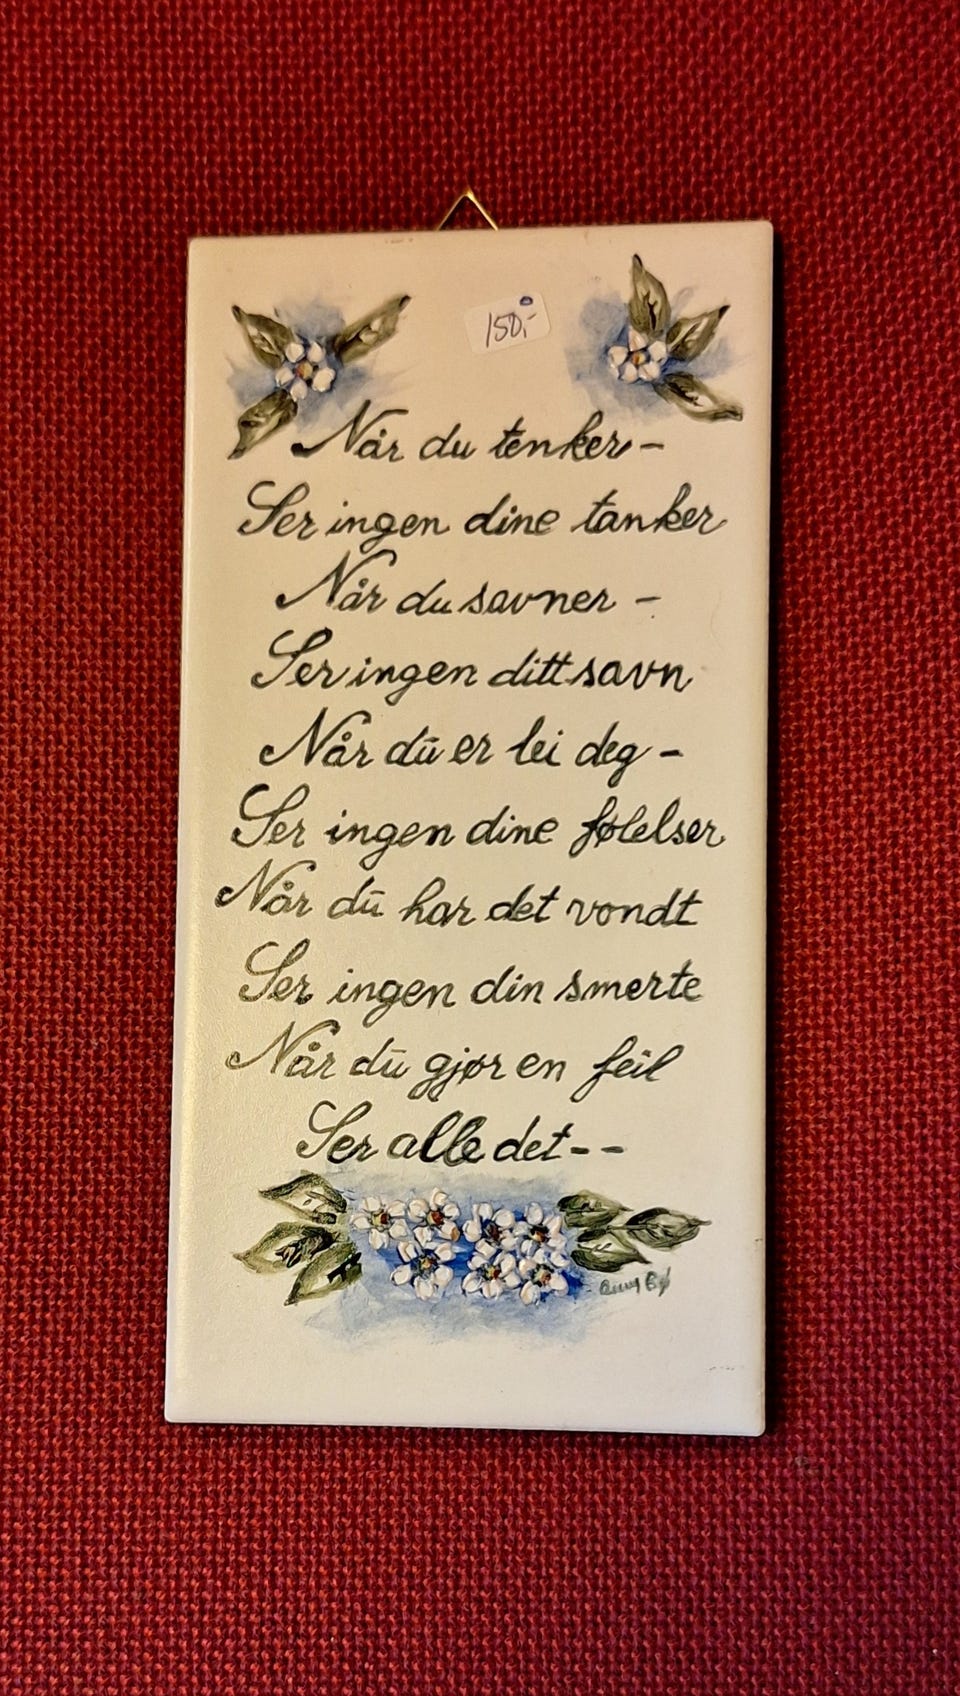 150,-
Når du tenker -
Ser ingen dine tanker
Når du savner -
Ser ingen ditt savn
Når du er lei deg -
Ser ingen dine følelser
Når du har det vondt
Ser ingen din smerte
Når du gjør en feil
Ser alle det - -